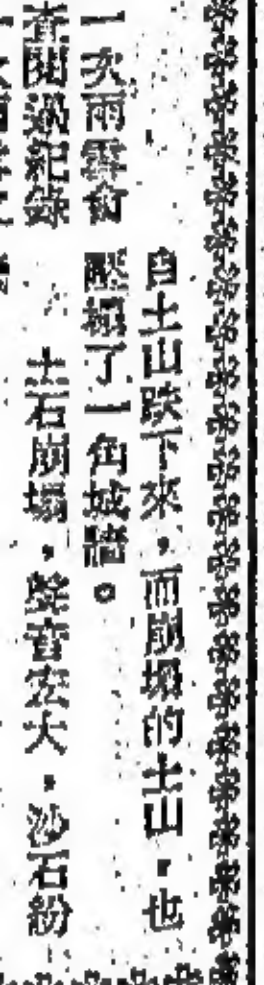 自土山跌下來，而崩塌的土山，也
壓塌了一角城牆。
土石崩塌，聲音宏大，沙石紛
一次雨雲會
查閱過紀錄